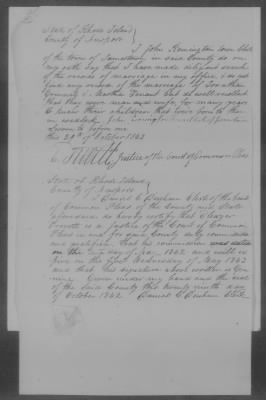 State of Rhode Island
County of Newport
I John Remington Town Clerk
of the Town of Jamestown in said County do on
my oath say that I have made diligent search
of the records of marriage in my office, & do not
find any record of the marriage of Jonathan
that they were man and wife for many years
& know their children that were born to them
in wedlock John Remington
Sworn to before me
this 29th of October 1862
E. Trevett Justice of the court of Common Pleas
State of Rhode Island,
County of Newport
I Daniel C Denham Clerk of the Court
of Common Pleas of the County and State
aforesaid do hereby certify that Eleazer
Trevett is a Justice of the Court of Common
Pleas in and for said County duly commissioned
and qualified that his commission was dated
on the day of May 1862 and will ex
pire on the first Wednesday of May 1863
and that his signature above written is Gen
uine. Given under my hand and the seal
of the said County this twenty ninth day
of October 1862. Daniel C Denham Clerk